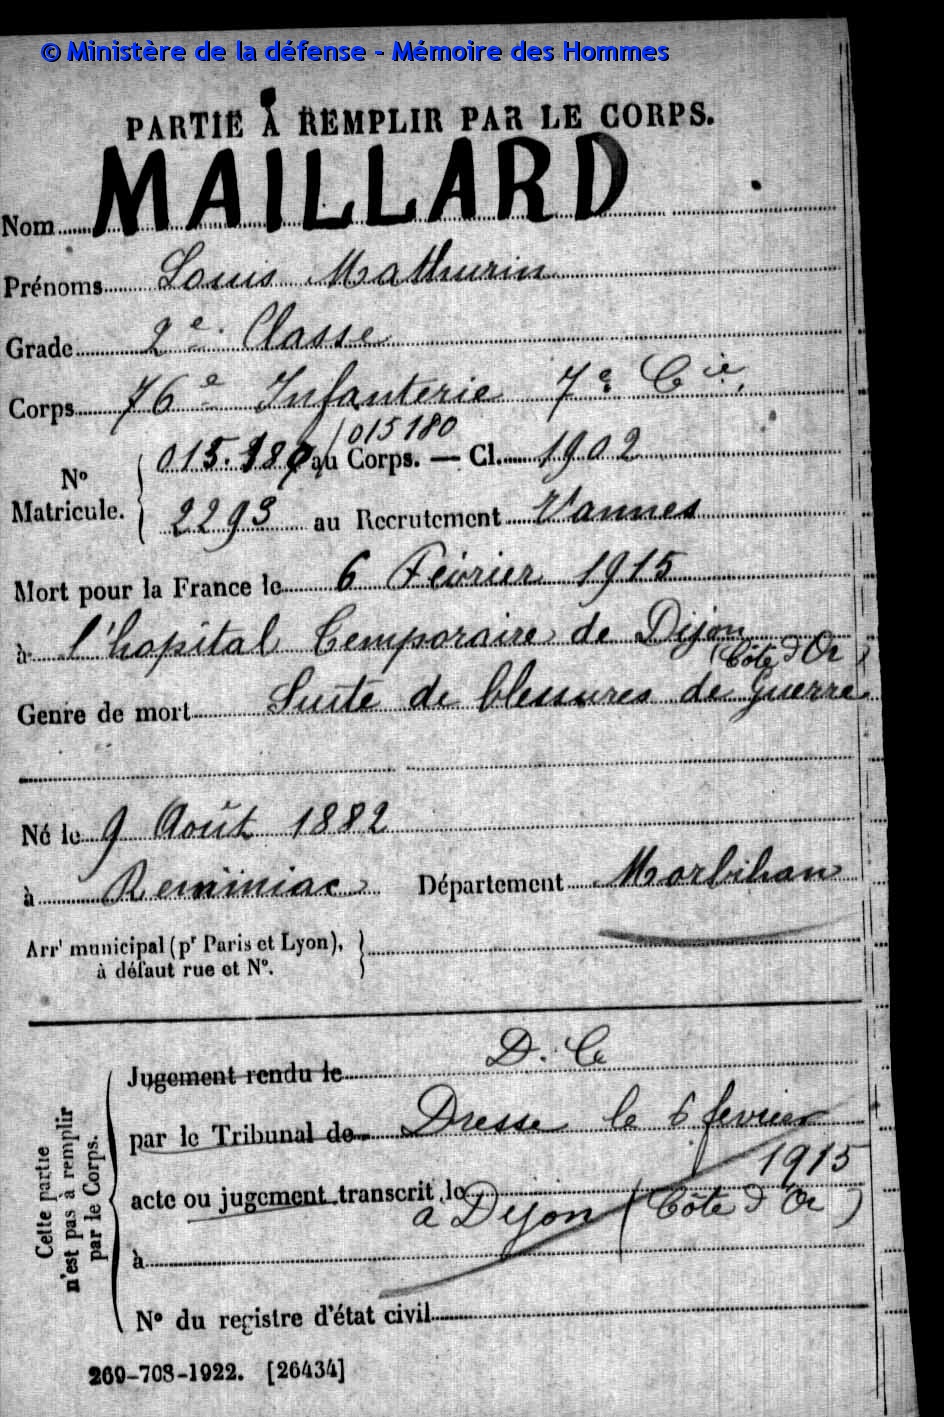 © Ministère de la défense - Mémoire des Hommes
PARTIE À REMPLIR PAR LE CORPS.
Nom MAILLARD
Prénoms Louis Mathurin
Grade 2e Classe
Corps 76e Infanterie 7e Cie.
015180
N° Matricule. { 015.180 au Corps. — Cl. 1902
2293 au Recrutement Vannes
Mort pour la France le 6 Février 1915
à l'hopital Temporaire de Dijon
(Côte d'Or)
Genre de mort Suite de blessures de Guerre
Né le 9 Août 1882
à Reminiac Département Morbihan
Arrt municipal (pr Paris et Lyon),
à défaut rue et N°.
Cette partie
n'est pas à remplir
par le Corps.
Jugement rendu le D. C
par le Tribunal de Dresse le 6 fevrier
1915
acte ou jugement transcrit le
à Dijon (Côte d'Or)
à
N° du registre d'état civil
269-708-1922. [26434]